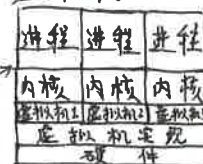 进程 进程 进程
内核 内核 内核
虚拟机1 虚拟机2 虚拟机
虚拟机实现
硬件